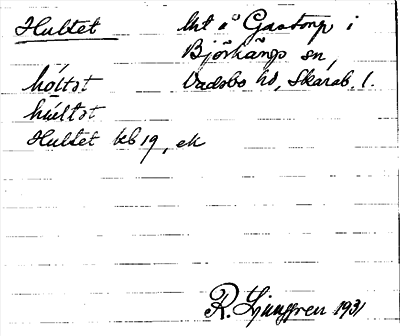 Hultet
lht i Gastorp i
Björkängs sn,
Vadsbo hd, Skarab. l.
höltst
húltst
Hultet kb 19, ek
R. Ljunggren 1931